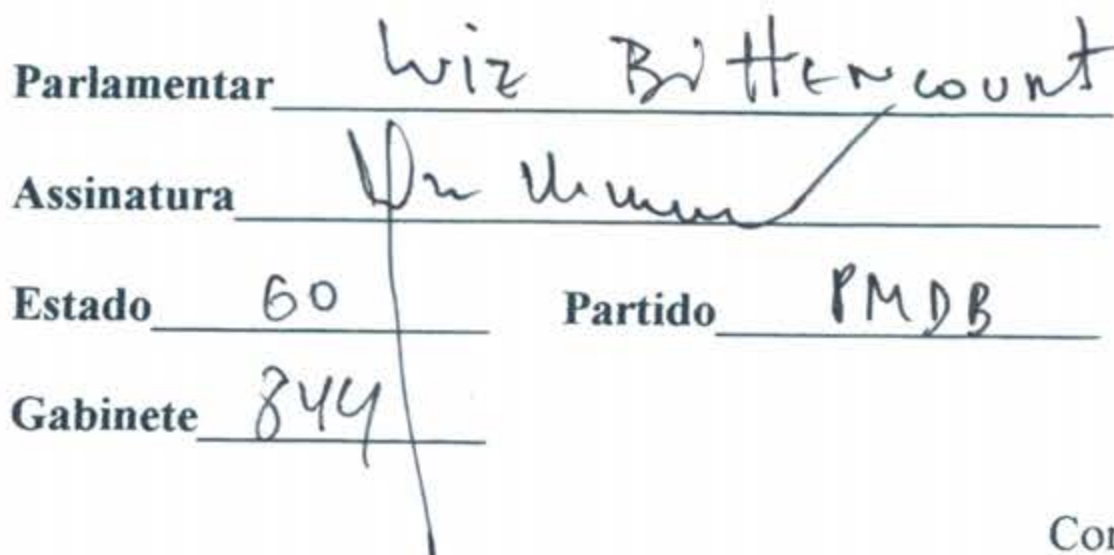 Parlamentar Luiz Bittencourt
Assinatura
Estado GO Partido PMDB
Gabinete 844
Con